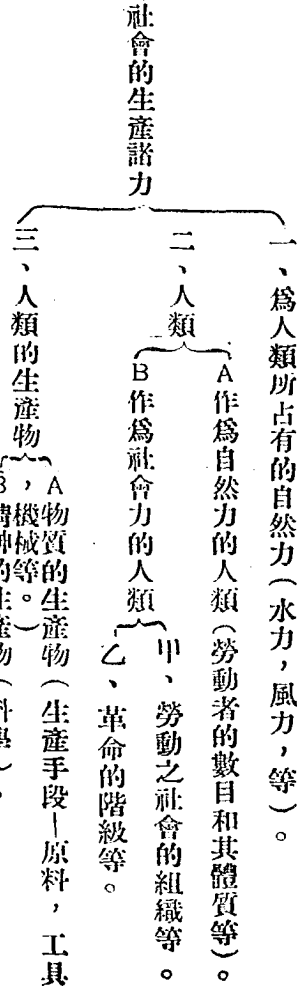 社會的生產諸力
一、爲人類所占有的自然力（水力，風力，等）。
二、人類
A作爲自然力的人類（勞動者的數目和其體質等）。
B作爲社會力的人類
甲、勞動之社會的組織等。
乙、革命的階級等。
三、人類的生產物
A物質的生產物（生產手段—原料，工具
，機械等。）
B精神的生產物（科學）。